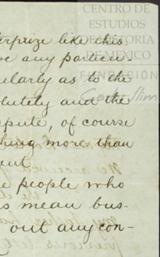 CENTRO DE
ESTUDIOS
DE HISTORIA
DE MÉXICO
FUNDACIÓN
Carlos Slim
terprize like this
ve any particu-
ularly as to the
olutely and the
spute, of course
thing more than
out
e people who
s mean bus-
out any con-